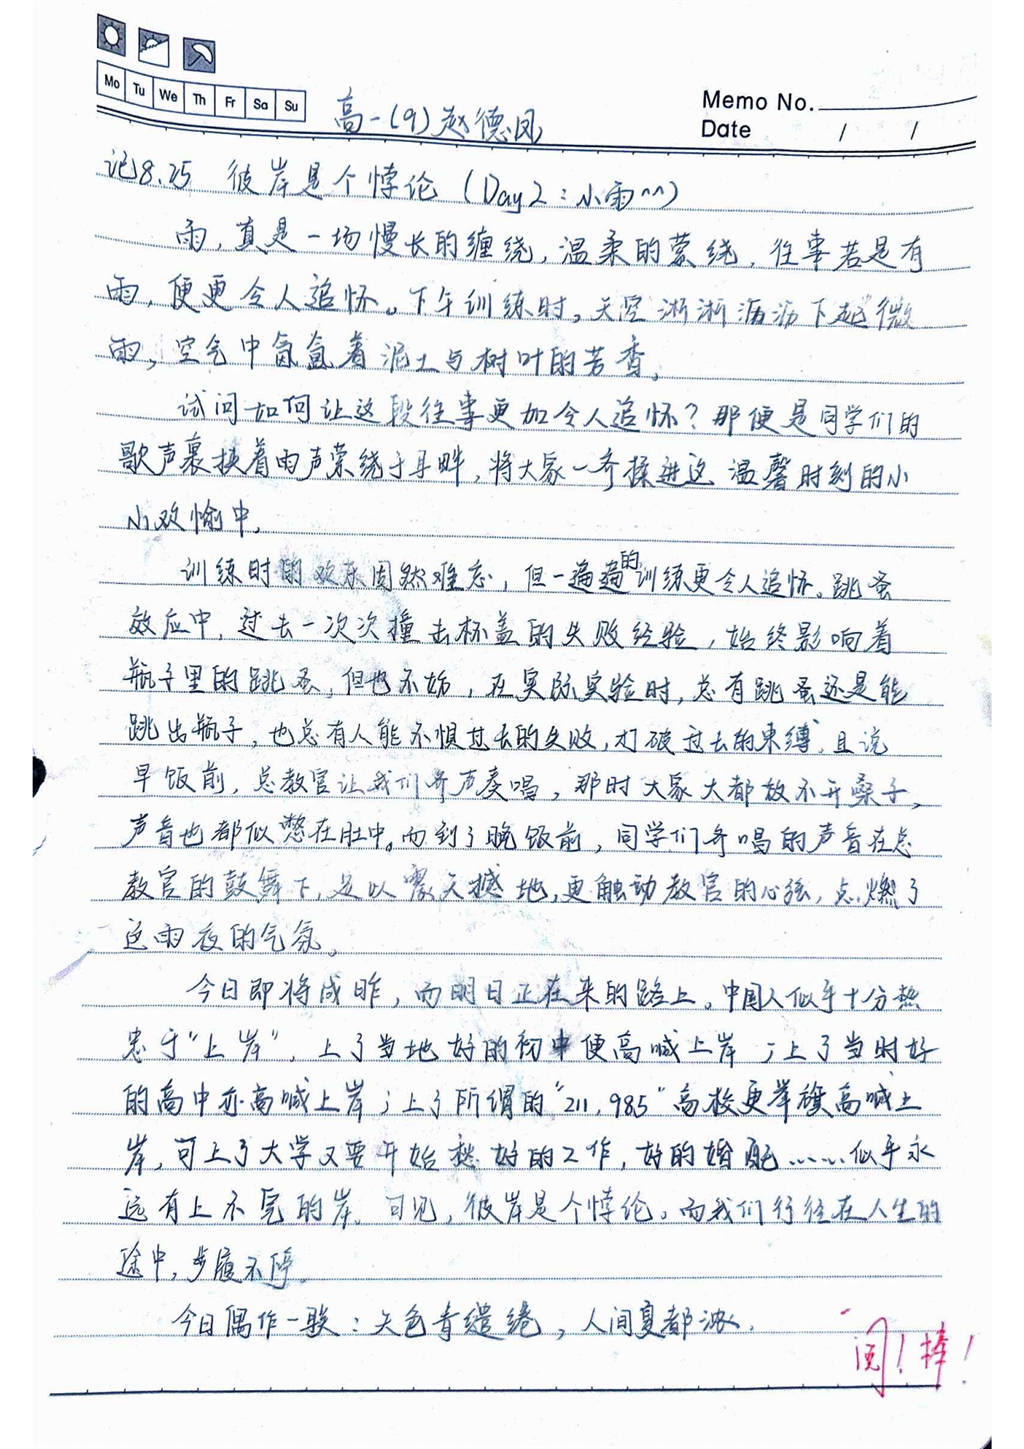 Mo Tu We Th Fr Sa Su
Memo No.
Date / /
高一(9)赵德凤
记8.25 彼岸是个悖论(Day2:小雨^^)
雨,真是一场慢长的缠绕,温柔的萦绕,往事若是有
雨,便更令人追怀。下午训练时,天空淅淅沥沥下起微
雨,空气中氤氲着泥土与树叶的苦香。
试问如何让这段往事更加令人追怀?那便是同学们的
歌声裹挟着雨声萦绕于耳畔,将大家一齐揉进这温馨时刻的小
小欢愉中。
训练时的欢乐固然难忘,但一遍遍的训练更令人追怀。跳蚤
效应中,过去一次次撞击杯盖的失败经验,始终影响着
瓶子里的跳蚤,但也不妨,在实际实验时,总有跳蚤还是能
跳出瓶子,也总有人能不惧过去的失败,打破过去的束缚。且说
早饭前,总教官让我们齐声奏唱,那时大家大都放不开嗓子,
声音也都似憋在肚中。而到了晚饭前,同学们齐唱的声音在总
教官的鼓舞下,足以震天撼地,更触动教官的心弦,点燃了
这雨夜的气氛。
今日即将成昨,而明日正在来的路上。中国人似乎十分热
忠于“上岸”,上了当地好的初中便高喊上岸;上了当时好
的高中亦高喊上岸;上了所谓的“211,985”高校更举旗高喊上
岸,可上了大学又要开始愁好的工作,好的婚配……似乎永
远有上不完的岸。可见,彼岸是个悖论,而我们行往在人生的
途中,步履不停。
今日偶作一联:天色青缱绻,人间夏都浓。
阅!棒!